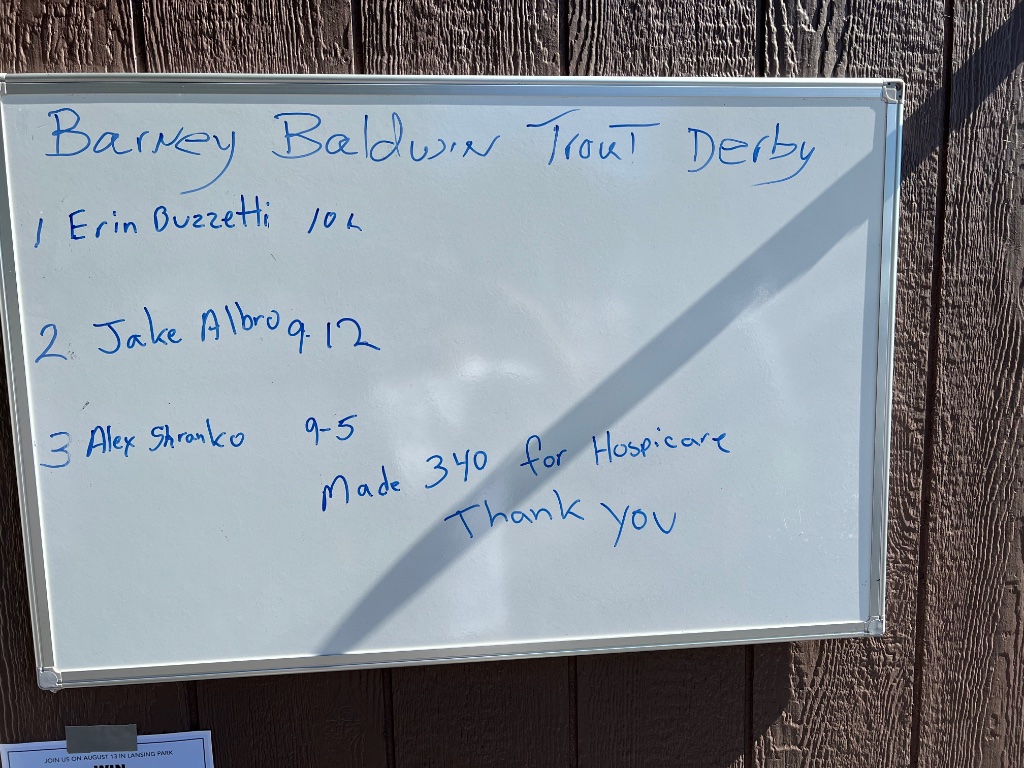 Barney Baldwin Trout Derby
1 Erin Buzzetti 10
2 Jake Albro 9-12
3 Alex Shronko 9-5
Made 340 for Hospicare
Thank you
JOIN US ON AUGUST 13 IN LANSING PARK
WIN